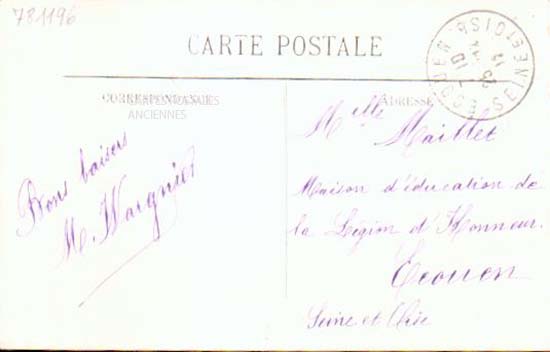 781196
CARTE POSTALE
CORRESPONDANCE
ANCIENNES
ADRESSE
Bons baisers
M. Wargnier
Melle Maillet
Maison d'éducation de
la Légion d'Honneur.
Ecouen
Seine et Oise
ECOUEN
SEINE ET OISE